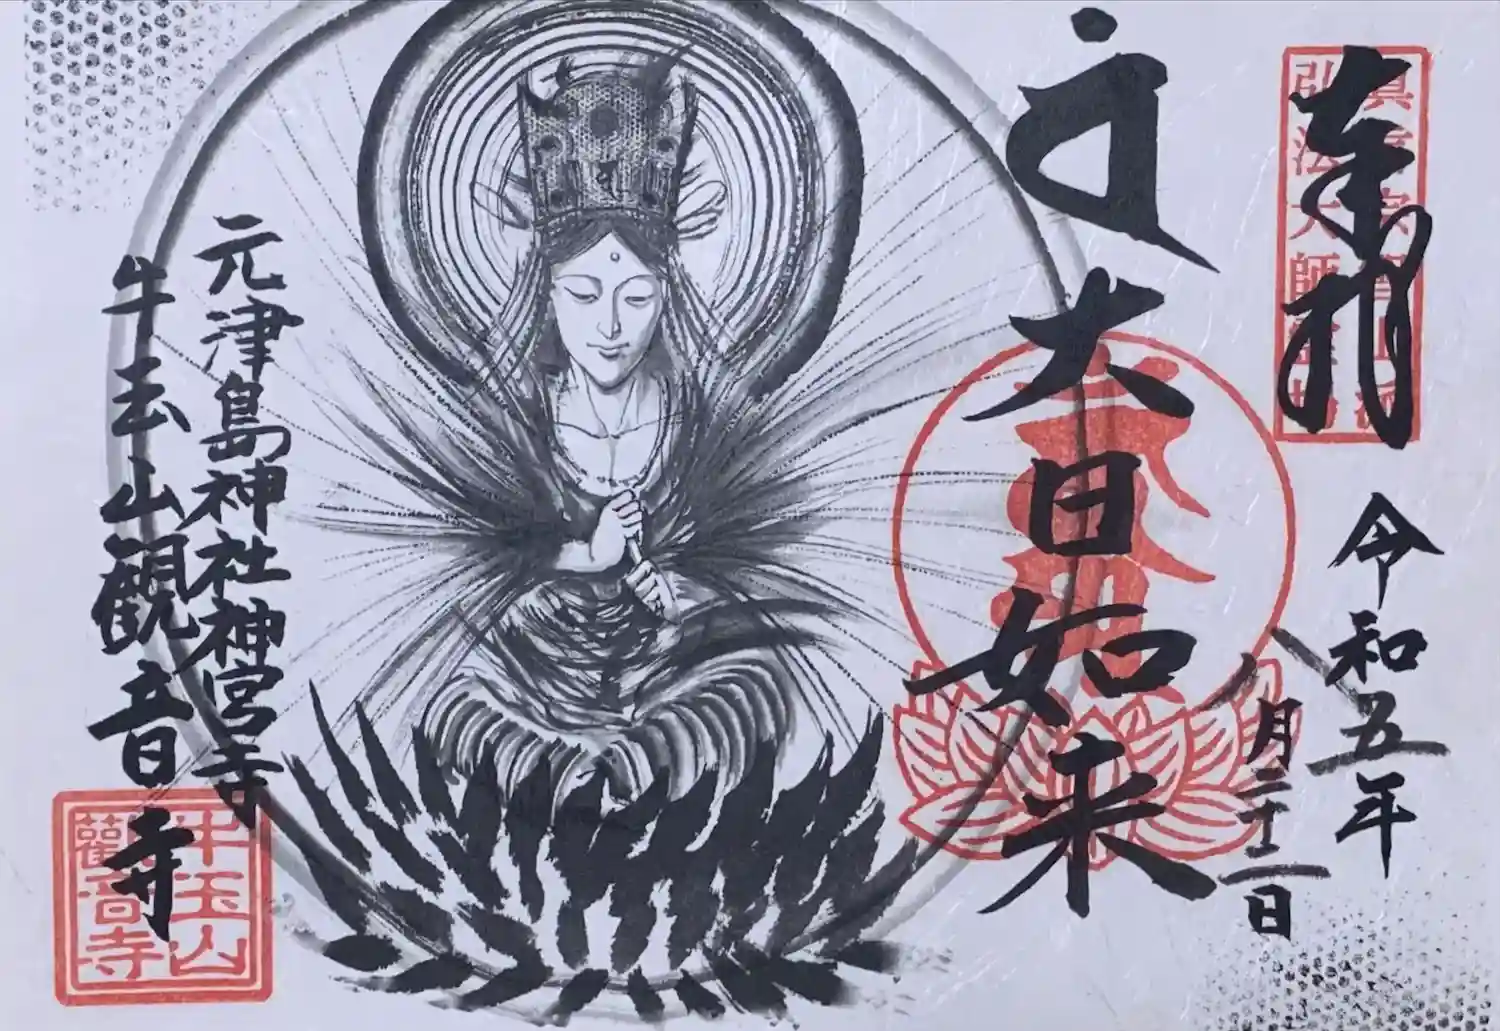 奉拝
眞言宗智山派
弘法大師霊場
令和五年
八月二十二日
𑖪𑖽
大日如来
元津島神社神宮寺
牛玉山観音寺
牛玉山
觀音寺